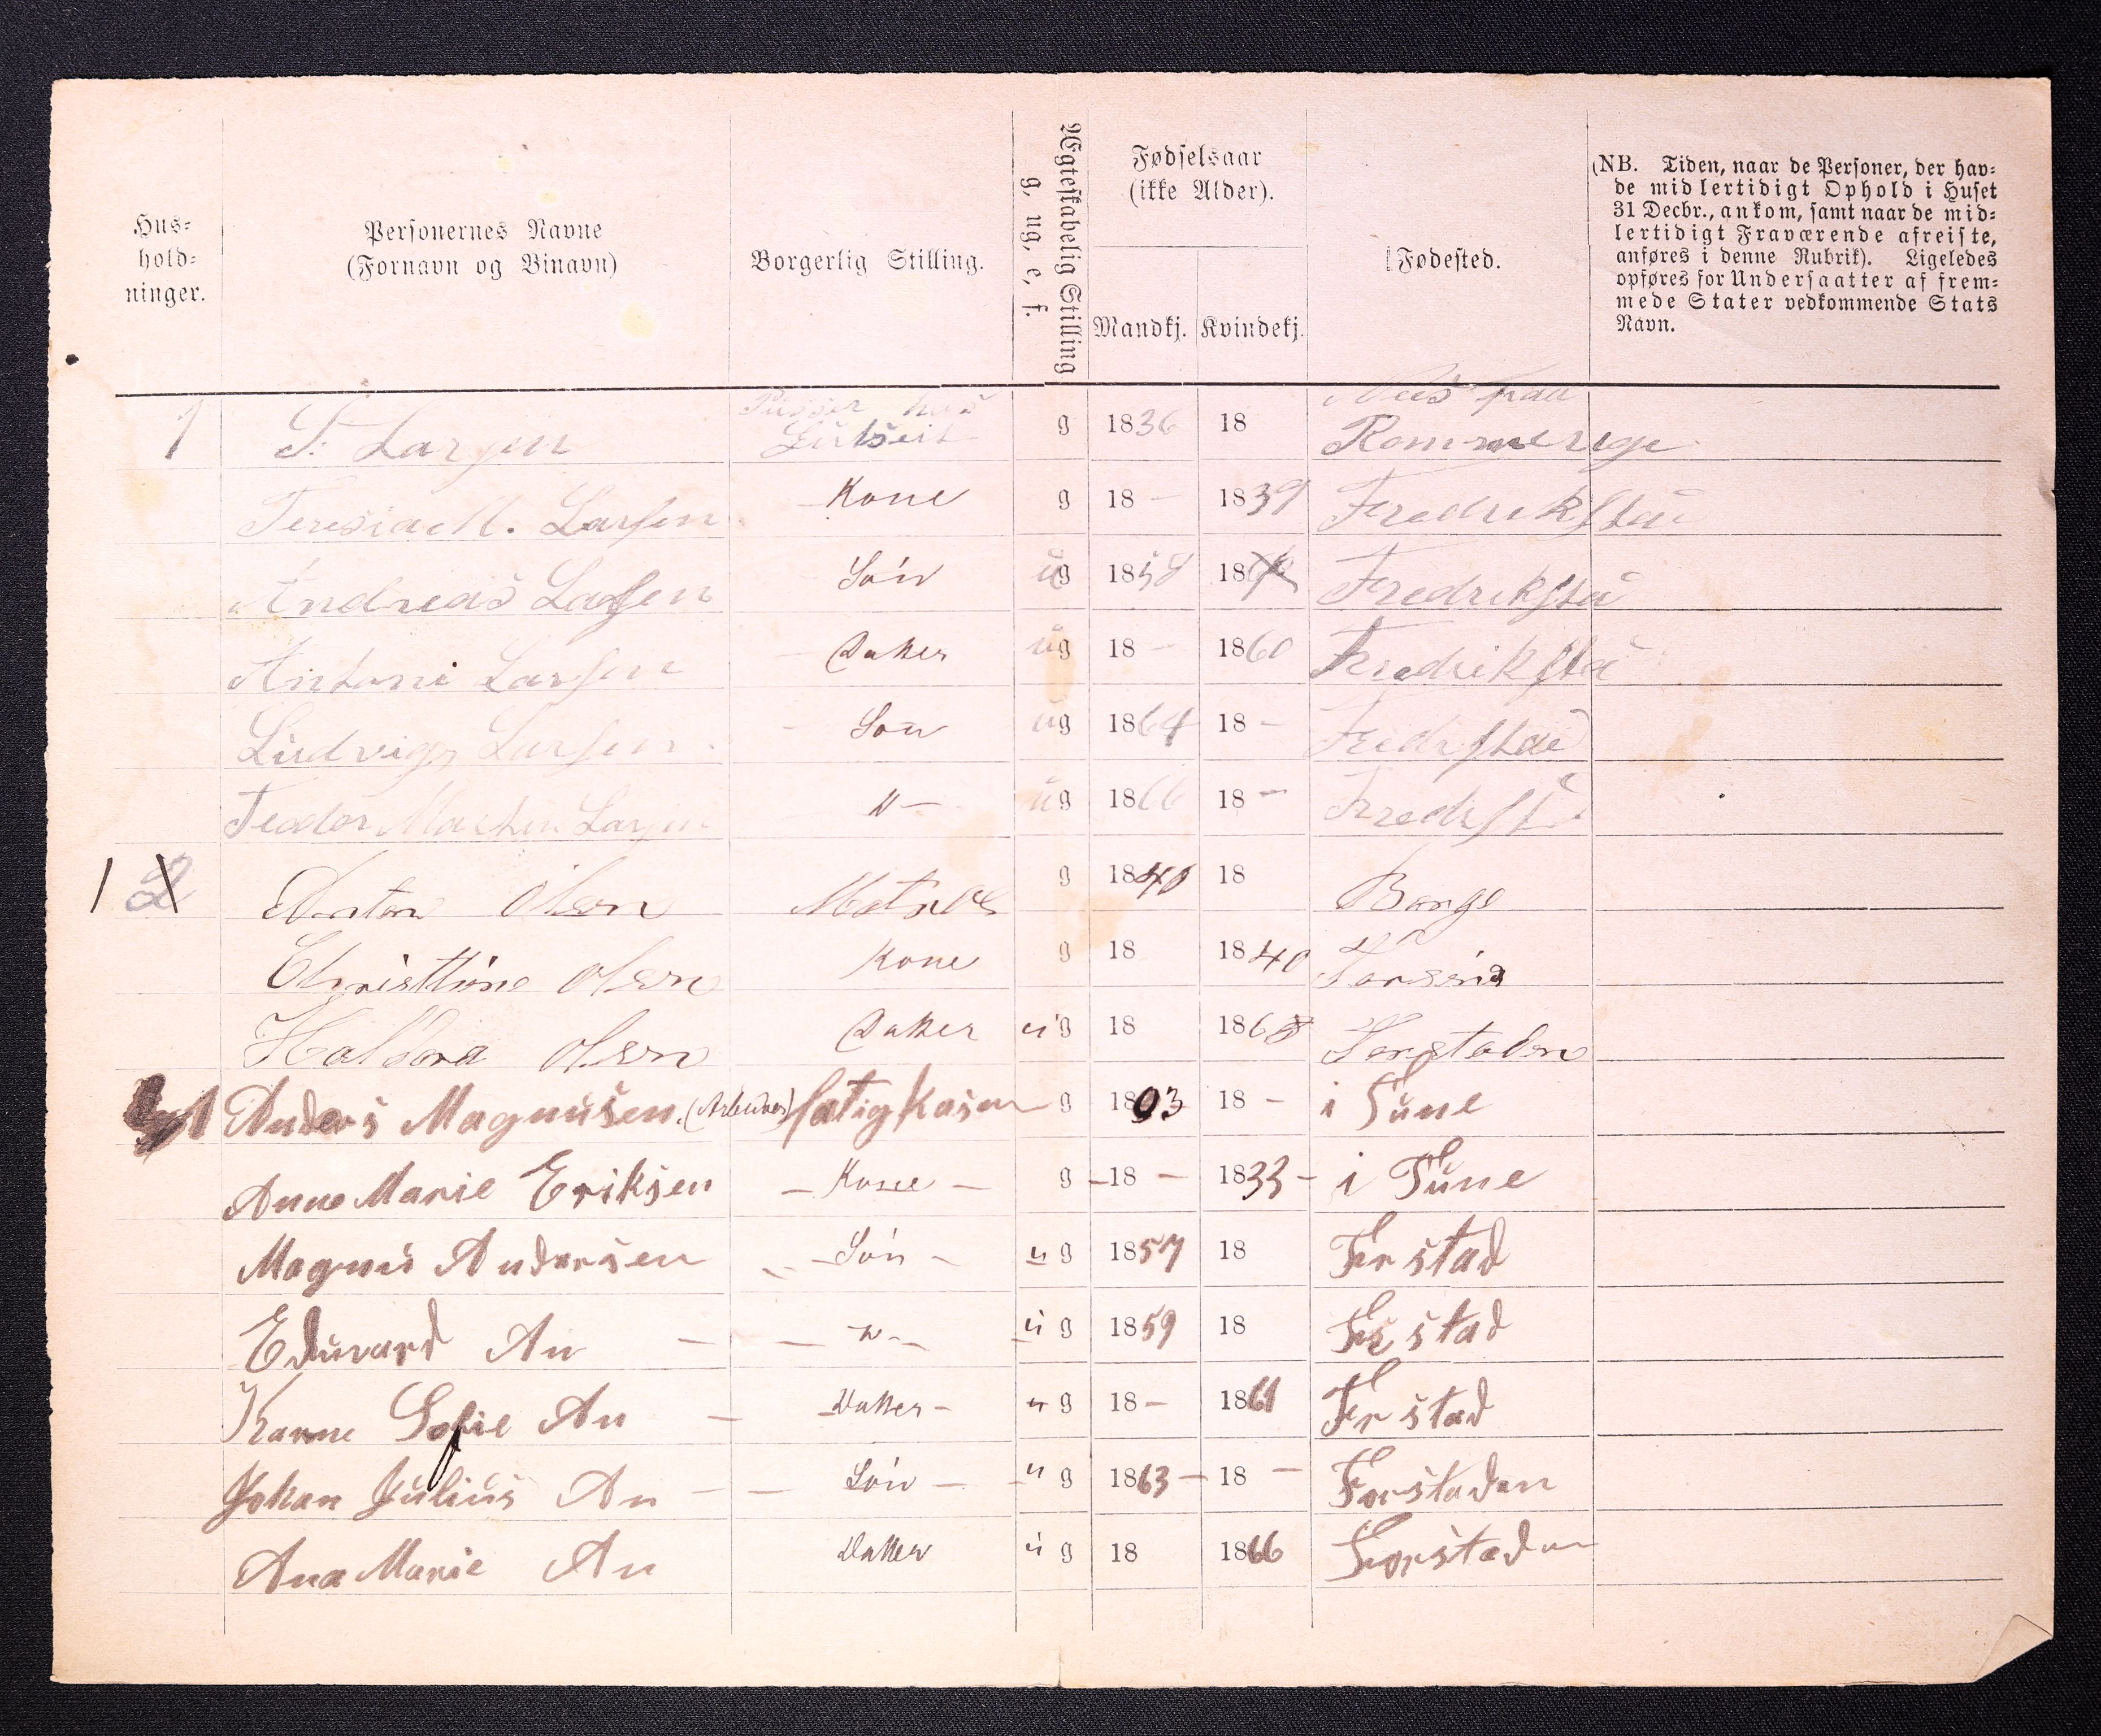 Hus-
hold-
ninger.
Personernes Navne
(Fornavn og Binavn)
Borgerlig Stilling.
Ægteskabelig Stilling
g, ug, e, f.
Fødselsaar
(ikke Alder).
Mandkj. Kvindekj.
Fødested.
(NB. Tiden, naar de Personer, der hav-
de midlertidigt Ophold i Huset
31 Decbr., ankom, samt naar de mid-
lertidigt Fraværende afreiste,
anføres i denne Rubrik). Ligeledes
opføres for Undersaatter af frem-
mede Stater vedkommende Stats
Navn.
1 S. Larsen g 1836 18 Nes paa Rommerige
Teresia M. Larsen Kone g 18 - 1839 Fredrikstad
Andreas Larsen Søn ug 1858 18 Fredrikstad
Antoni Larsen Datter ug 18 - 1860 Fredrikstad
Ludvig Larsen - Søn ug 1864 18 - Fredrstad
Teodor Martin Larsen "- ug 1866 18 - Fredrst
1 2 Anton Olsen Matros g 1840 18 Borge
Christtine Olsen Kone g 18 1840
Haldora Olsen Datter ug 18 1868 Forstaden
1 Anders Magnusen (Arbeider) fatigkasen g 1803 18 - i Tune
Anne Marie Eriksen - Kone - g - 18 - 1833 - i Tune
Magnus Andersen - Søn - ug 1857 18 Frstad
Eduvard An - - "- ug 1859 18 Frstad
Karne Sofie An - - Datter - ug 18 - 1861 Frstad
Johan Julius An - - Søn - ug 1863 - 18 - Forstaden
Ana Marie An Datter ug 18 1866 Forstaden